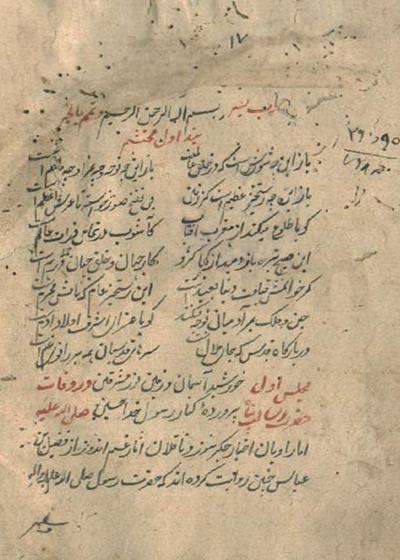 ۱۷
رب یسر بسم الله الرحمن الرحیم و تمم بالخیر
بند اول محتشم
باز این چه شورش است که در خلق عالمست باز این چه نوحه و چه عزا و چه ماتم است
باز این چه رستخیز عظیم است کز زمین بی نفخ صور خواسته تا عرش اعظم است
گویا طلوع میکند از مغرب آفتاب کاشوب در تمامی ذرات عالم است
این صبح تیره باز دمید از کجا کزو کار جهان و خلق جهان جمله درهم است
گر خوانمش قیامت دنیا بعید نیست این رستخیز عام که نامش محرم است
جن و ملک بر آدمیان نوحه میکنند گویا عزای اشرف اولاد آدم است
در بارگاه قدس که جای ملال نیست سرهای قدسیان همه بر زانوی غم است
مجلس اول خورشید آسمان و زمین نور مشرقین در وفات
حضرت رسالت پناه پرورده کنار رسول خدا حسین صلی الله علیه
اما راویان اخبار جگرسوز و ناقلان آثار غم اندوز از فضل بن
عباس چنین روایت کرده اند که حضرت رسول صلی الله علیه واله